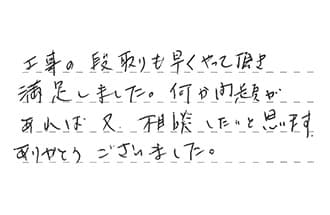 工事の段取りも早くやって頂き
満足しました。何か問題が
あれば又相談したいと思います。
ありがとうございました。